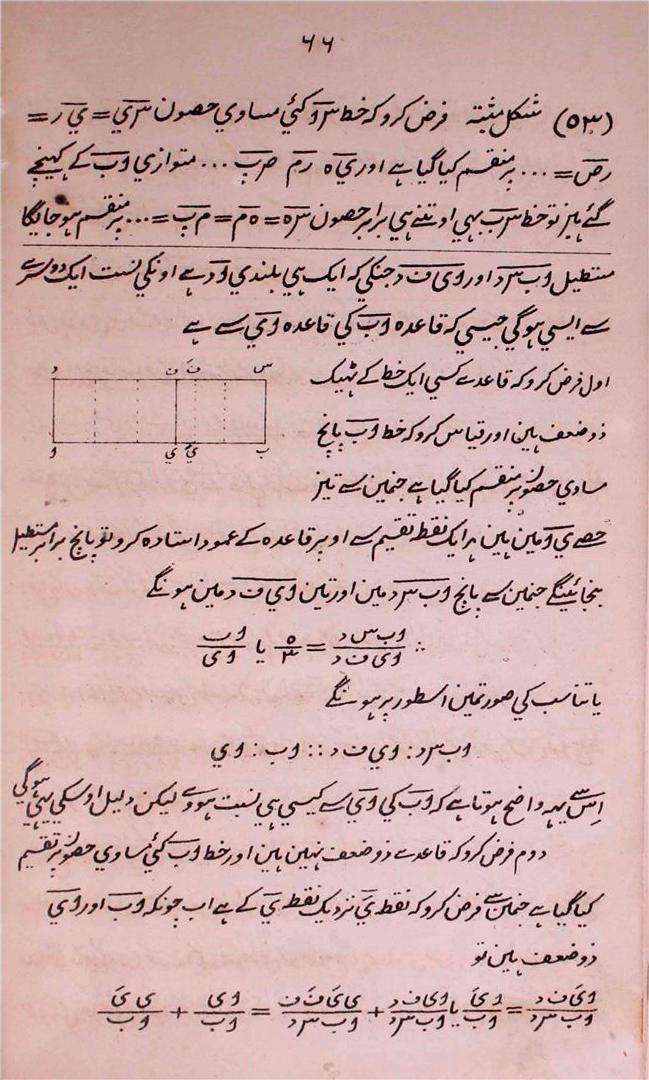 ۶۶
(۵۳) شکل مثبتہ فرض کرو کہ خط س و کئی مساوی حصون س ی = ی ر =
ر ص = ... پر منقسم کیا گیا ہے اور ی ہ ر م ص پ ... متوازی و ب کے کہینچے
گئے ہین تو خط س ب بہی اوتنے ہی برابر حصون س ہ = ہ م = م پ = ... پر منقسم ہو جائیگا
مستطیل و ب س د اور و ی ف د جنکی کہ ایک ہی بلندی و د ہے اونکی نسبت ایک دوسرے
سے ایسی ہوگی جیسی کہ قاعدہ و ب کی قاعدہ و ی سے ہے
اول فرض کرو کہ قاعدے کسی ایک خط کے ٹہیک
ذو ضعف ہین اور قیاس کرو کہ خط و ب پانچ
مساوی حصون پر منقسم کیا گیا ہے جنمین سے تین
د ف فَ س
و ی یَ ب
حصے ی و مین ہین ہر ایک نقطہ تقسیم سے اوپر قاعدہ کے عمود استادہ کرو تو پانچ برابر مستطیل
بنجائینگے جنمین سے پانچ و ب س د مین اور تین و ی ف د مین ہونگے
∴ و ب س د / و ی ف د = ۵ / ۳ یا و ب / و ی
یا تناسب کی صورتمین اسطور پر ہونگے
و ب س د : و ی ف د :: و ب : و ی
اس سے یہہ واضح ہوتا ہے کہ و ب کی و ی سے کیسی ہی نسبت ہووے لیکن دلیل اوسکی یہی ہوگی
دوم فرض کرو کہ قاعدے ذو ضعف نہین ہین اور خط و ب کئی مساوی حصون پر تقسیم
کیا گیا ہے جنمین سے فرض کرو کہ نقطہ یَ نزدیک نقطہ ی کے ہے اب چونکہ و ب اور و یَ
ذو ضعف ہین تو
و یَ فَ د / و ب س د = و یَ / و ب یا و ی ف د / و ب س د + ی یَ فَ ف / و ب س د = و ی / و ب + ی یَ / و ب